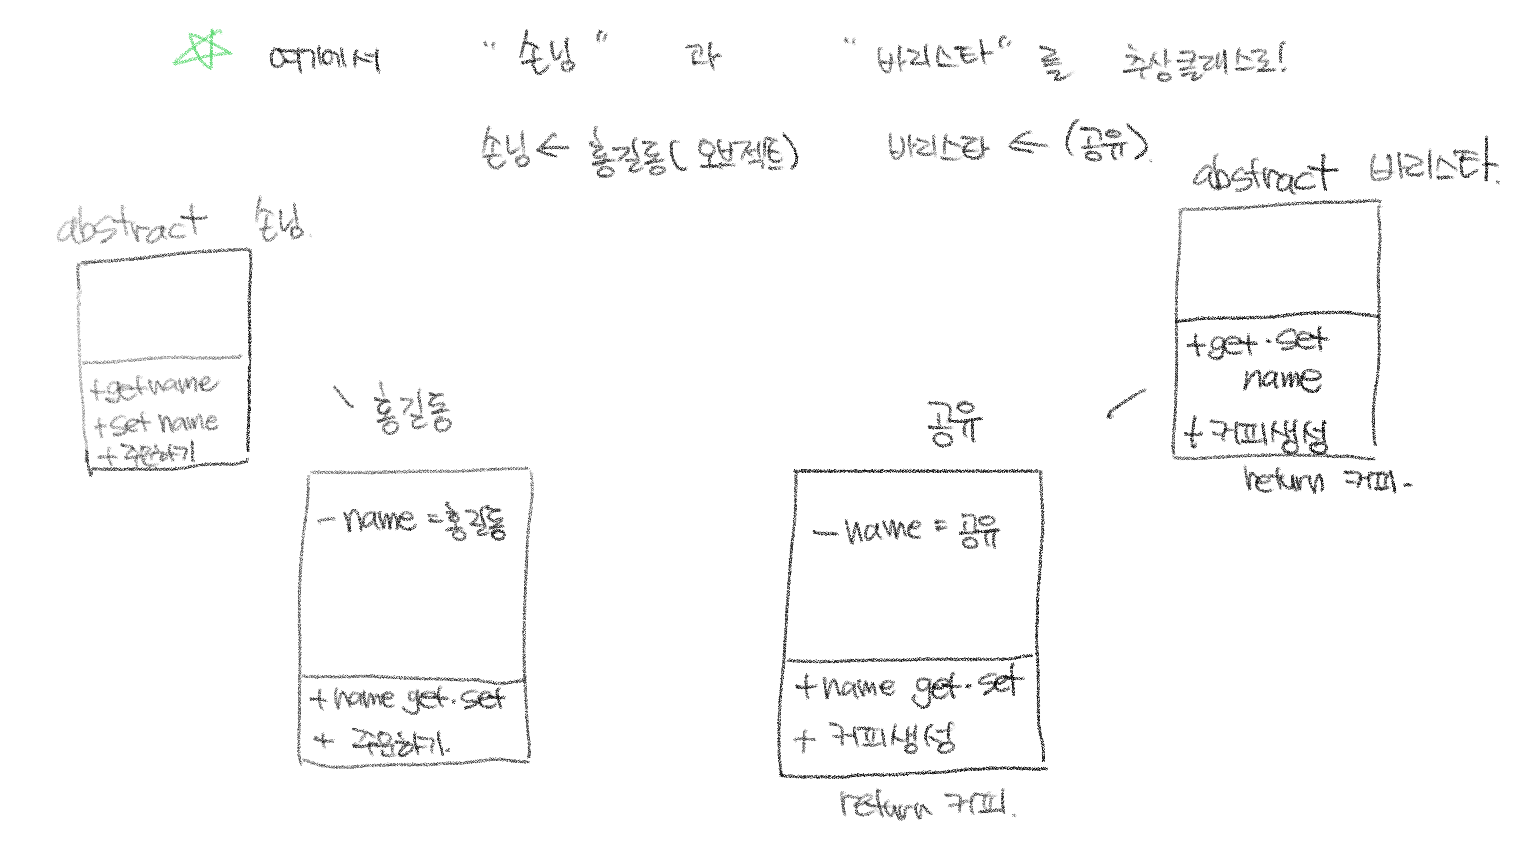 여기에서 "손님" 과 "바리스타"를 추상클래스로!
손님 ← 홍길동( 오브젝트) 바리스타 ← (공유).
abstract 손님.
+getname
+set name
+ 주문하기
홍길동
- name = 홍길동
+ name get.set
+ 주문하기.
공유
- name = 공유
+ name get.set
+ 커피생성
return 커피.
abstract 바리스타.
+get.set
name
+ 커피생성
return 커피.